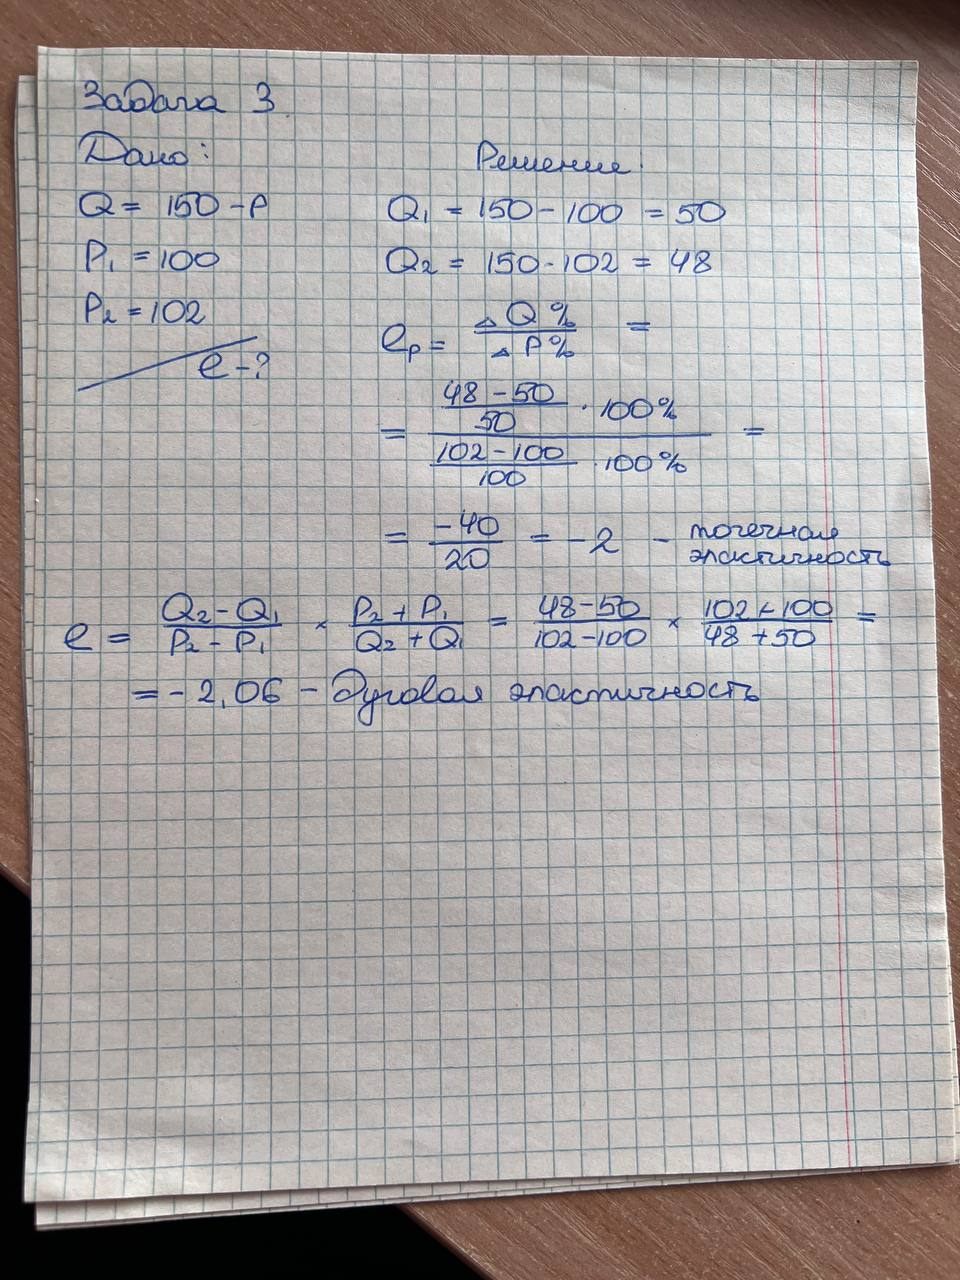 Задача 3
Дано:
Q = 150 - P
P₁ = 100
P₂ = 102
e - ?
Решение:
Q₁ = 150 - 100 = 50
Q₂ = 150 - 102 = 48
eₚ = ΔQ% / ΔP% =
= (48 - 50)/50 · 100% / (102 - 100)/100 · 100% =
= -40/20 = -2 - точечная эластичность
e = (Q₂ - Q₁)/(P₂ - P₁) × (P₂ + P₁)/(Q₂ + Q₁) = (48 - 50)/(102 - 100) × (102 + 100)/(48 + 50) =
= - 2,06 - Дуговая эластичность